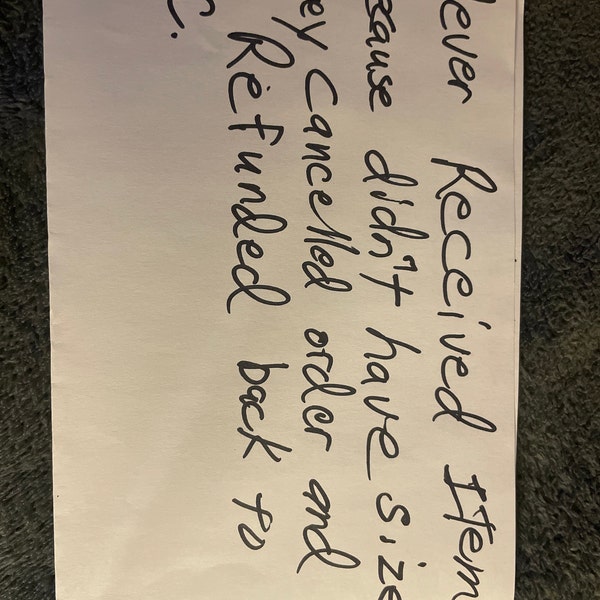 Never Received Item
ecause didn't have size
ey Cancelled order and
Refunded back to
C.